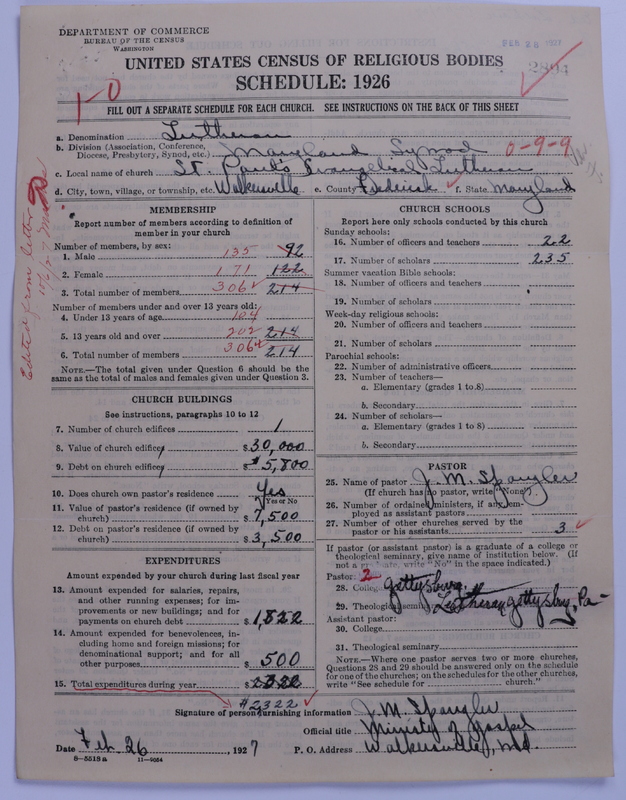 DEPARTMENT OF COMMERCE
BUREAU OF THE CENSUS
WASHINGTON
FEB 28 1927
2894
UNITED STATES CENSUS OF RELIGIOUS BODIES
SCHEDULE: 1926
1-0
FILL OUT A SEPARATE SCHEDULE FOR EACH CHURCH. SEE INSTRUCTIONS ON THE BACK OF THIS SHEET
a. Denomination Lutheran
b. Division (Association, Conference, Diocese, Presbytery, Synod, etc.) Maryland Synod 0-9-9
c. Local name of church St. Paul's Evangelical Lutheran
d. City, town, village, or township, etc. Walkersville e. County Frederick f. State Maryland
Edited from letter
MEMBERSHIP
Report number of members according to definition of
member in your church
Number of members, by sex:
1. Male 135 92
2. Female 171 122
3. Total number of members 306 214
Number of members under and over 13 years old:
4. Under 13 years of age 104
5. 13 years old and over 202 214
6. Total number of members 306 214
NOTE.—The total given under Question 6 should be
same as the total of males and females given under Question 3.
CHURCH BUILDINGS
See instructions, paragraphs 10 to 12
7. Number of church edifices 1
8. Value of church edifice $ 30,000
9. Debt on church edifice $ 5,800
10. Does church own pastor's residence Yes
Yes or No
11. Value of pastor's residence (if owned by
church) $ 7,500
12. Debt on pastor's residence (if owned by
church) $ 3,500
EXPENDITURES
Amount expended by your church during last fiscal year
13. Amount expended for salaries, repairs,
and other running expenses; for im-
provements or new buildings; and for
payments on church debt $ 1,822
14. Amount expended for benevolences, in-
cluding home and foreign missions; for
denominational support; and for all
other purposes $ 500
15. Total expenditures during year $ 2322
$2322
CHURCH SCHOOLS
Report here only schools conducted by this church
Sunday schools:
16. Number of officers and teachers 22
17. Number of scholars 235
Summer vacation Bible schools:
18. Number of officers and teachers
19. Number of scholars
Week-day religious schools:
20. Number of officers and teachers
21. Number of scholars
Parochial schools:
22. Number of administrative officers
23. Number of teachers—
a. Elementary (grades 1 to 8)
b. Secondary
24. Number of scholars—
a. Elementary (grades 1 to 8)
b. Secondary
PASTOR
25. Name of pastor J. M. Spangler
(If church has no pastor, write "None")
26. Number of ordained ministers, if any, em-
ployed as assistant pastors
27. Number of other churches served by the
pastor or his assistants 3
If pastor (or assistant pastor) is a graduate of a college or
theological seminary, give name of institution below. (If
not a graduate, write "No" in the space indicated.)
Pastor: 2
28. College Gettysburg
29. Theological seminary Lutheran Gettysburg, Pa
Assistant pastor:
30. College
31. Theological seminary
NOTE.—Where one pastor serves two or more churches,
Questions 28 and 29 should be answered only on the schedule
for one of the churches; on the schedules for the other churches,
write "See schedule for church."
Signature of person furnishing information J. M. Spangler
Official title Ministry of Gospel
Date Feb. 26, 1927 P. O. Address Walkersville, Md.
8-5518a 11-9054